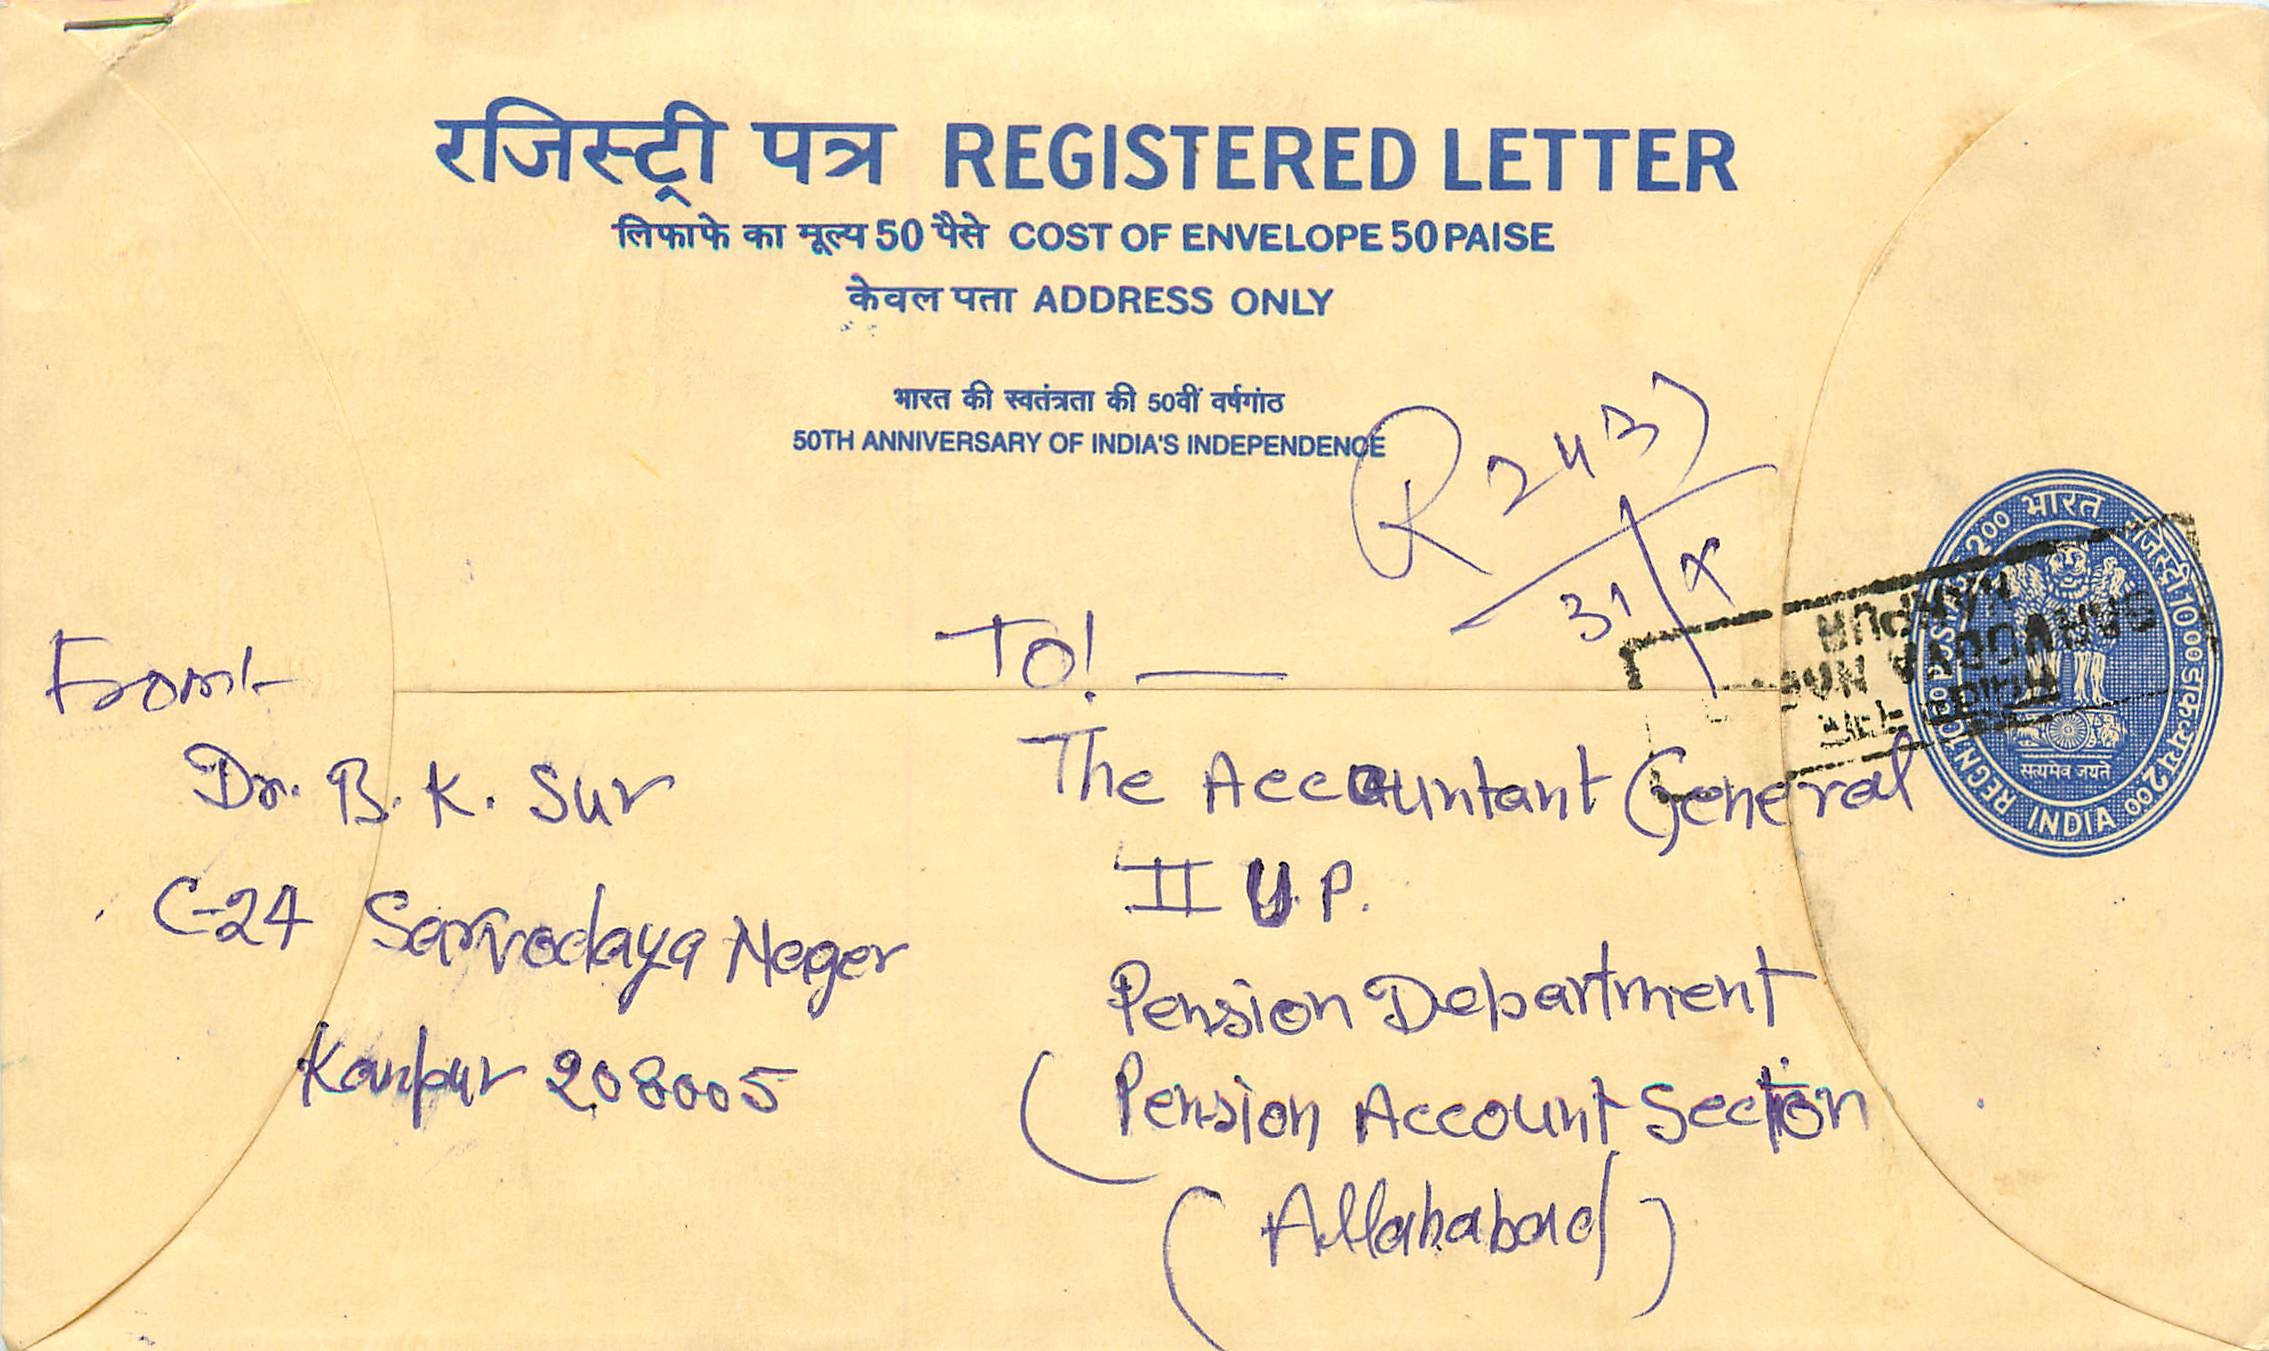 रजिस्ट्री पत्र REGISTERED LETTER
लिफाफे का मूल्य 50 पैसे COST OF ENVELOPE 50 PAISE
केवल पता ADDRESS ONLY
भारत की स्वतंत्रता की 50वीं वर्षगांठ
50TH ANNIVERSARY OF INDIA'S INDEPENDENCE
R 2437
31 X
भारत
रजिस्ट्री 1000 डाक 200
सत्यमेव जयते
INDIA
REGN 1000 POSTAGE 200
SARVODYA NAGAR
KANPUR
From:-
Dr. B. K. Sur
C-24 Sarvodaya Nagar
Kanpur 208005
To! —
The Accountant General
II U.P.
Pension Department
( Pension Account Section
( Allahabad )